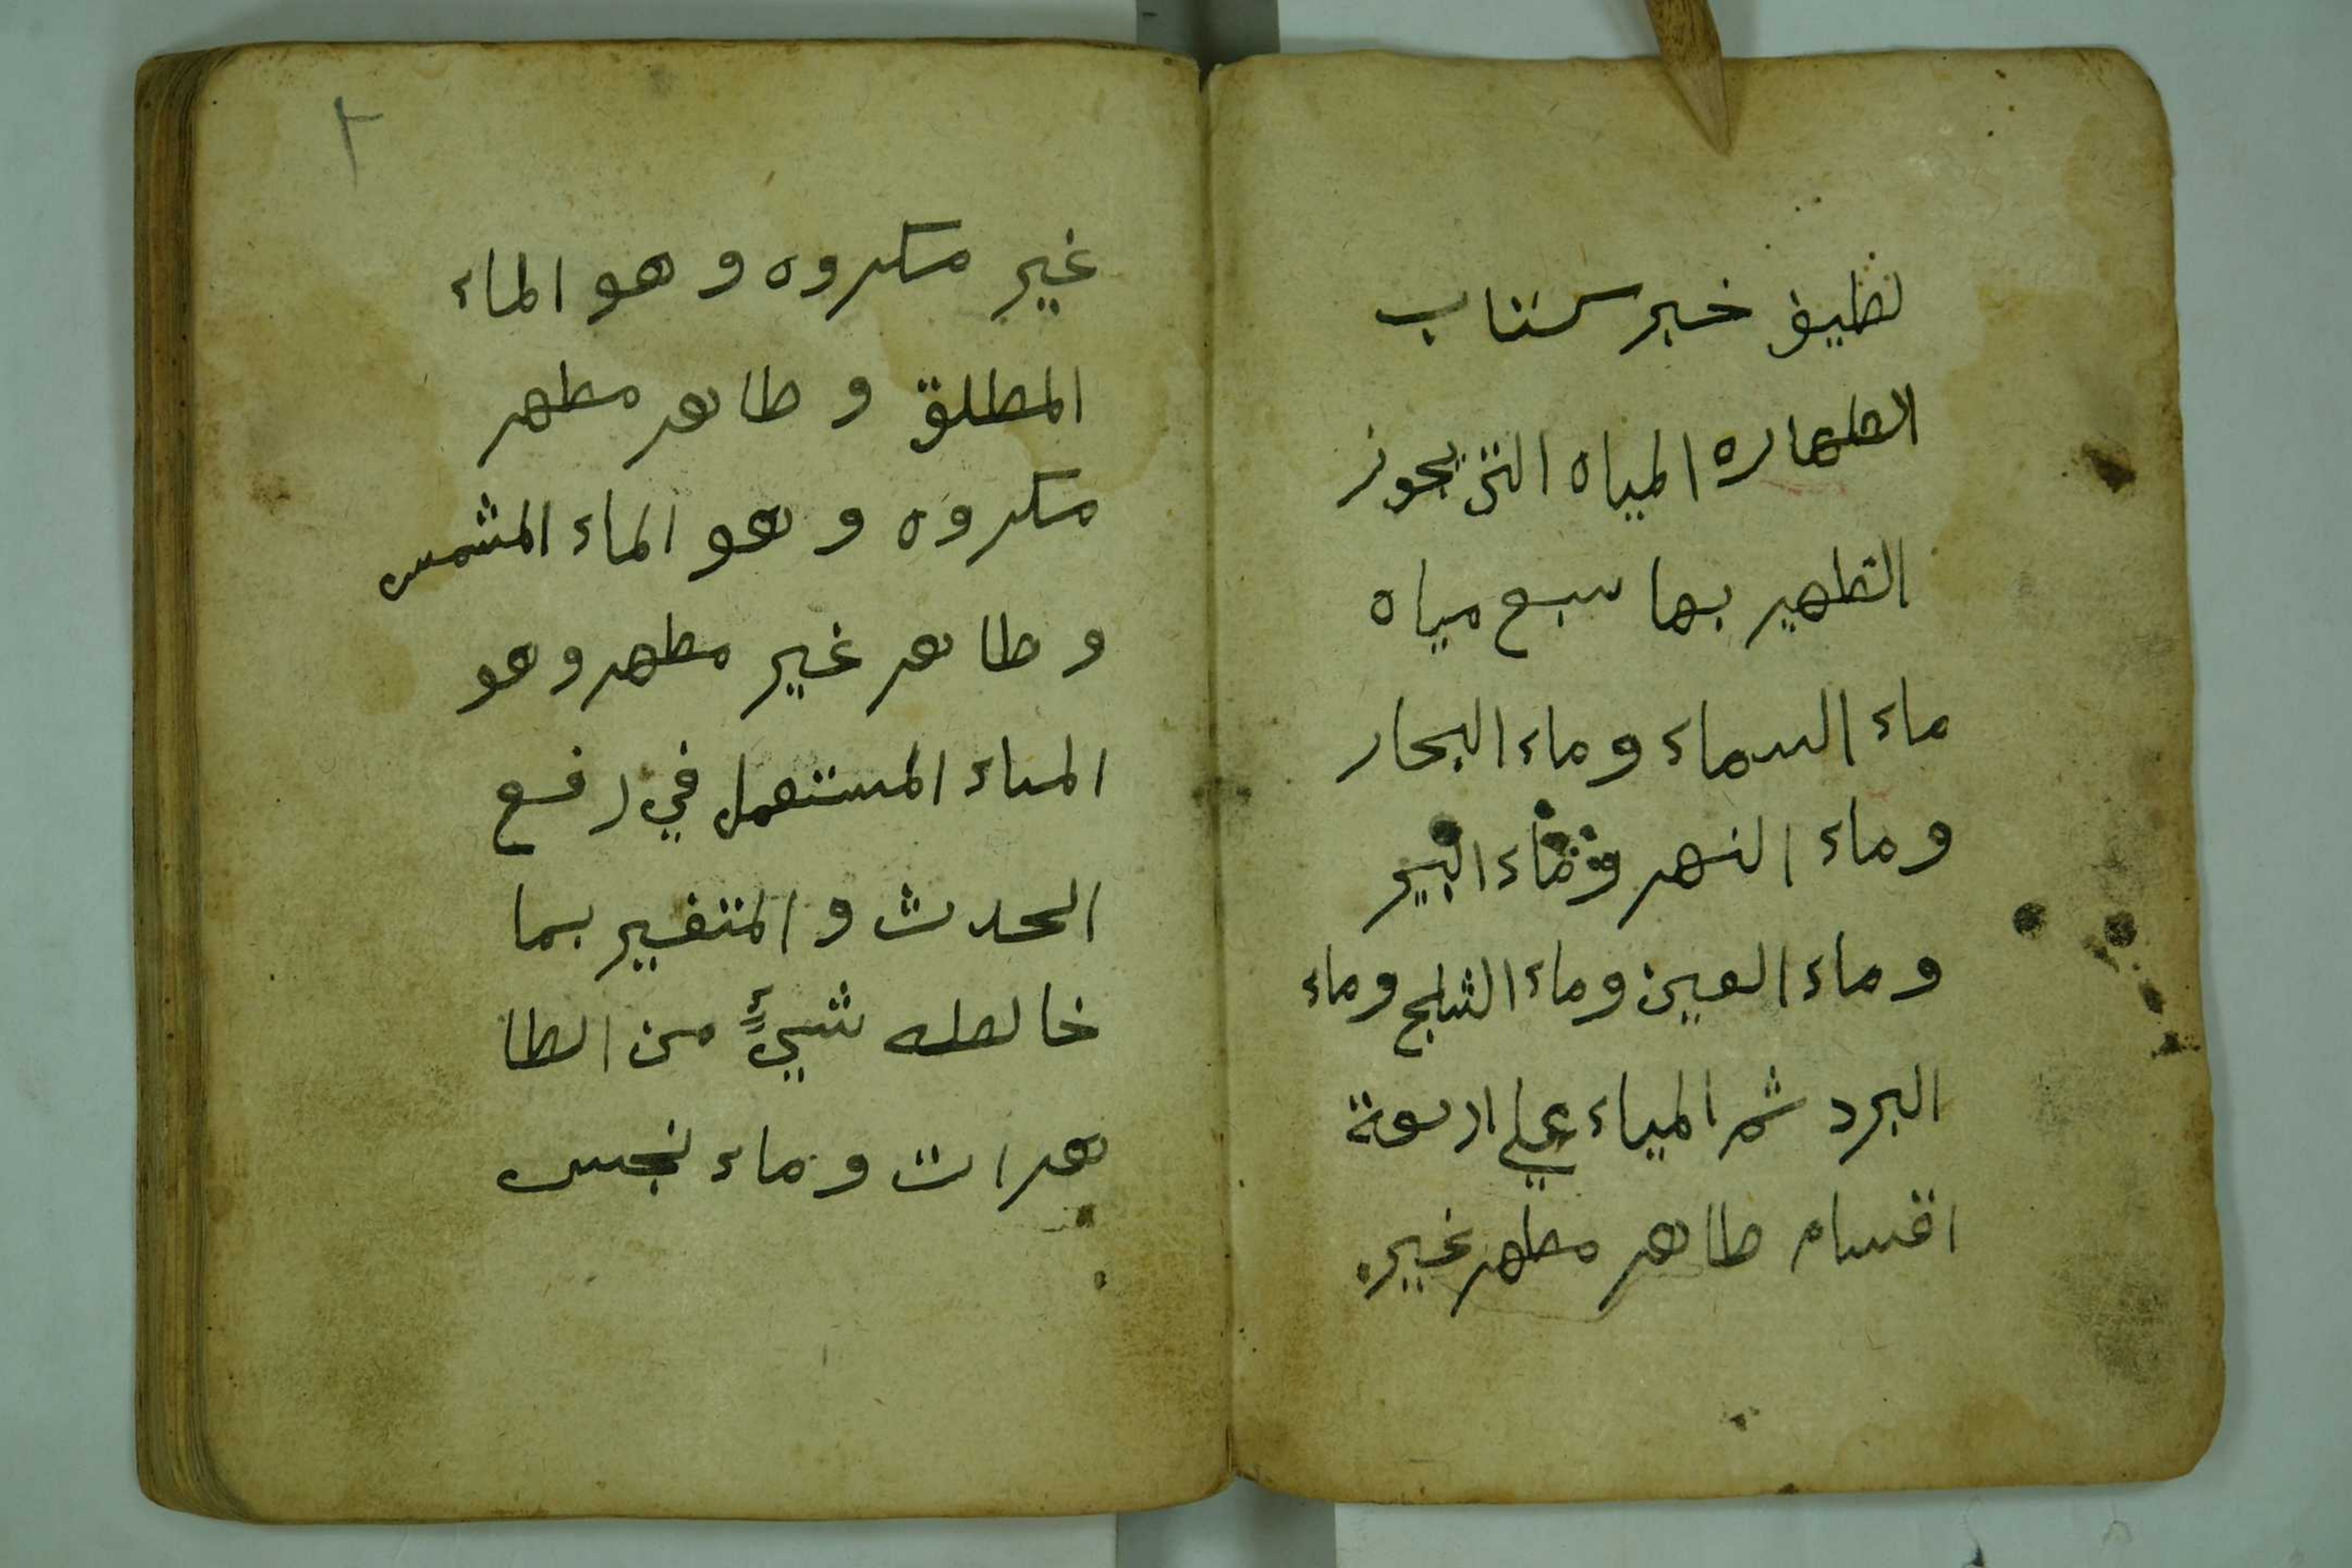 لطيف خبير كتاب
الطهاره المياه التي يجوز
التطهير بها سبع مياه
ماء السماء وماء البحار
وماء النهر وماء البير
وماء العين وماء الثلج وماء
البرد ثم المياء علي اربعة
اقسام طاهر مطهر غير
٢
غير مكروه وهو الماء
المطلق و طاهر مطهر
مكروه وهو الماء المشمس
و طاهر غير مطهر وهو
الماء المستعمل في رفع
الحدث و المتغير بما
خالطه شيءٍ من الطا
هرات و ماء نجس